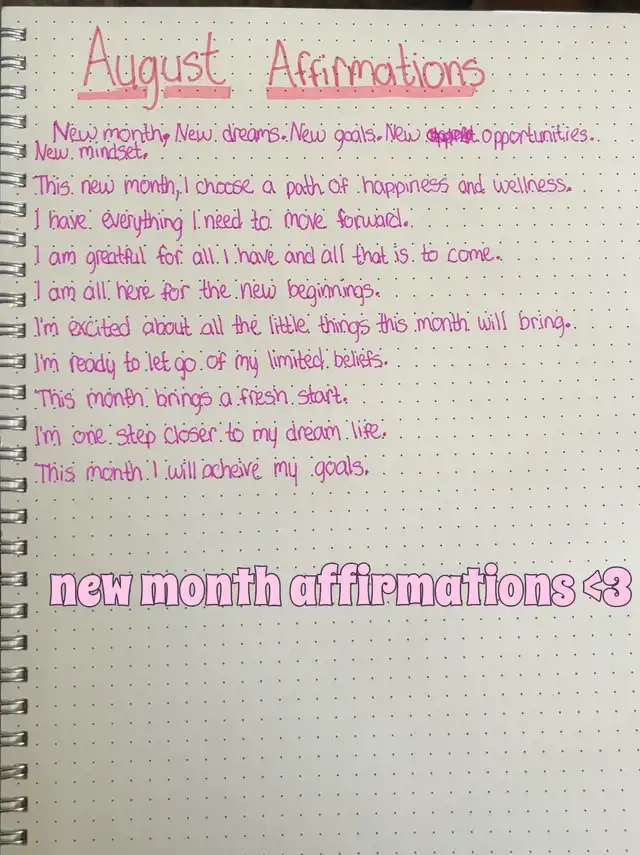 August Affirmations
New month, New dreams. New goals. New opportunities.
New mindset.
This new month, I choose a path of happiness and wellness.
I have everything I need to move forward.
I am greatful for all I have and all that is to come.
I am all here for the new beginnings.
I'm excited about all the little things this month will bring.
I'm ready to let go of my limited beliefs.
This month brings a fresh start.
I'm one step closer to my dream life.
This month I will acheive my goals.
new month affirmations <3